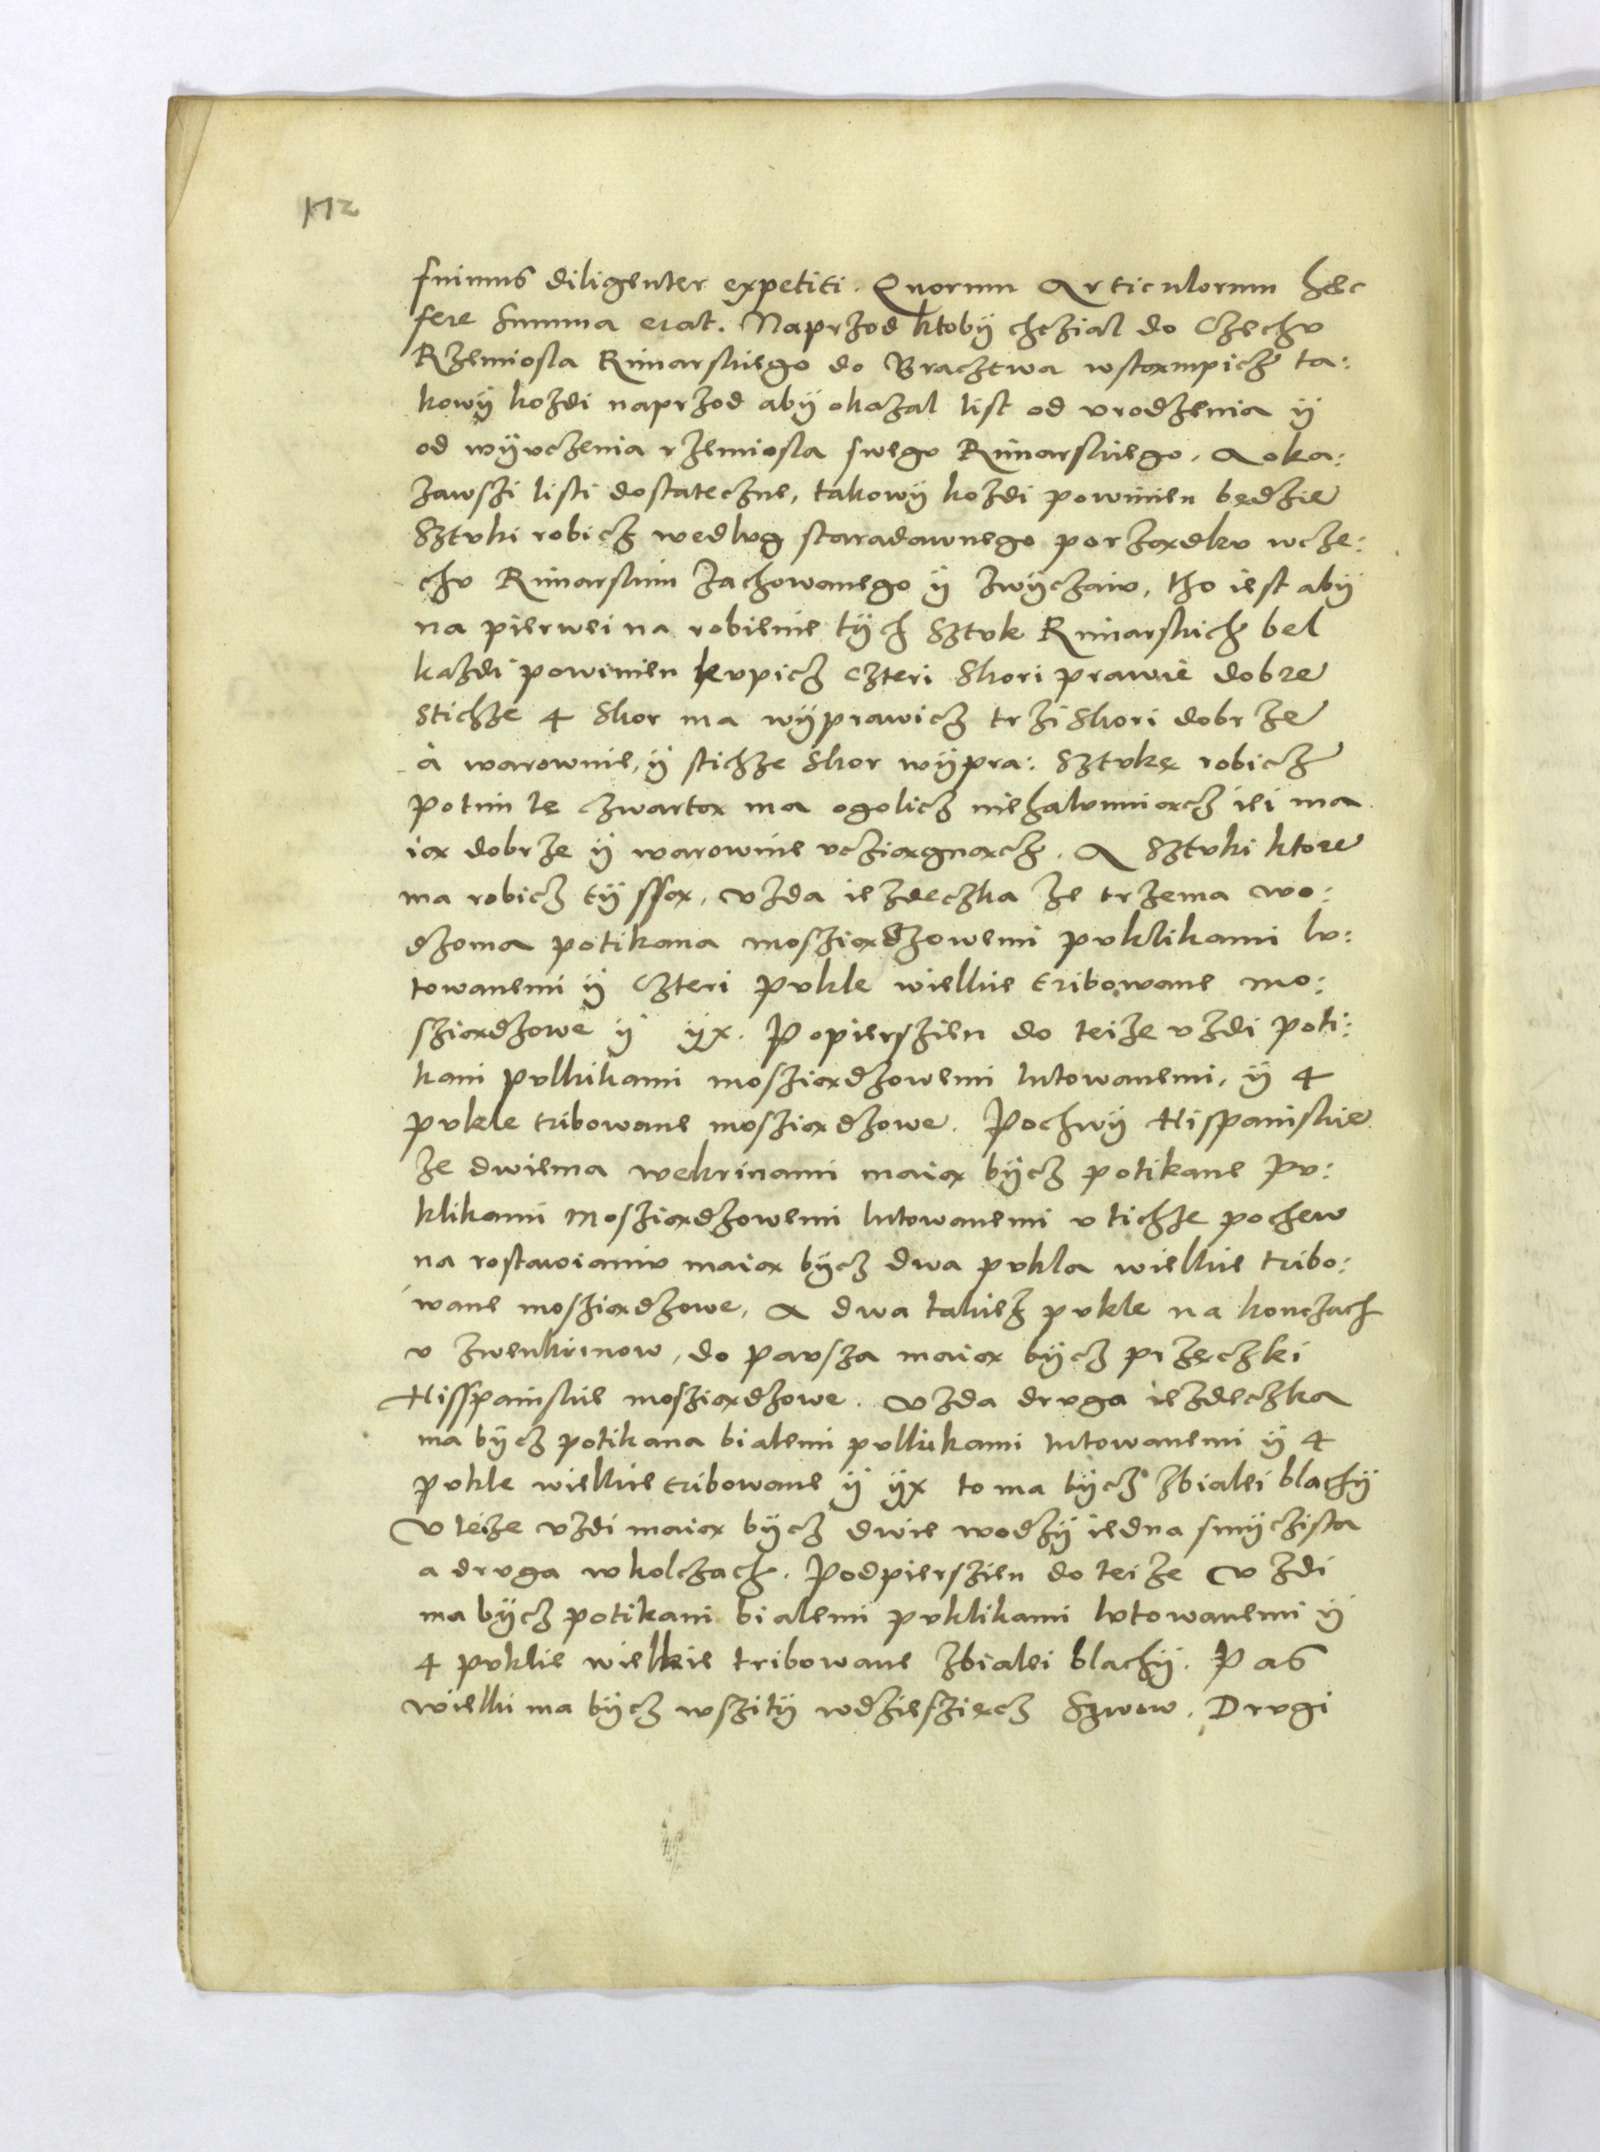 172
fuimus diligenter expetiti. Quorum Articulorum hec
fere summa erat. Naprzod ktobÿ chcział do Czechu
Rzemiosla Rimarskiego do Bracztwa wstąmpicz ta:
kowÿ kozdi naprzod abÿ okazal list od vrodzenia ÿ
od wÿvczenia rzemiosla swego Rimarskiego. A oka:
zawszi listi dostateczne, takowÿ kozdi powinien będzie
Sztvki robicz wedlvg staradawnego porządkv wcze:
chv Rimarskim zachowanego ÿ zwÿczaiv, tho iest abÿ
na pierwei na robienie tÿch Sztvk Rimarskich bel
kazdi powinien kvpicz czteri Skori prawie dobre
Stichze 4 Skor ma wÿprawicz trzi Skori dobrze
a warownie, ÿ stichze Skor wÿpra: Sztvkę robicz
Potim tę czwartą ma ogolicz niehalvniącz iei ma
ią dobrze ÿ warownie vcziągnącz. A Sztvki ktore
ma robicz tÿ ssą, vzda iezdeczka ze trzema wo:
dzoma potikana mosziądzowemi pvklikami lv:
towanemi ÿ Czteri Pvkle wielkie tribowane mo:
sziądzowe ÿ ÿx. Popierszien do teize vzdi poti:
kani pvlkikami mosziądzowemi lutowanemi, ÿ 4
pvkle tribowane mosziądzowe. Pochwÿ Hispaniskie
ze dwiema wekrinami maią bÿcz potikane pv:
klikami Mosziądzowemi lutowanemi v tichze pochew
na rostawianiv maią bÿcz dwa pvkla wielkie tribo:
wane mosziądzowe, A dwa takiez pvkle na konczach
v zwenkrinow, do Pavsza maią bÿcz przęczki
Hisspaniskie mosziądzowe. Vzda drvga iezdeczka
ma bÿcz potikana bialemi pvlkikami lutowanemi ÿ 4
pvkle wielkie tribowane ÿ ÿx to ma bÿcz zbialei blachÿ
V teize vzdi maią bÿcz dwie wodzÿ iedna smÿczista
a drvga wkolczach. Podpierszien do teize Vzdi
ma bÿcz potikani bialemi pvklikami lvtowanemi ÿ
4 pvklie wielkie tribowane zbialei blachÿ. Pas
wielki ma bÿcz wszitÿ wdziesziecz Szwow. Drvgi